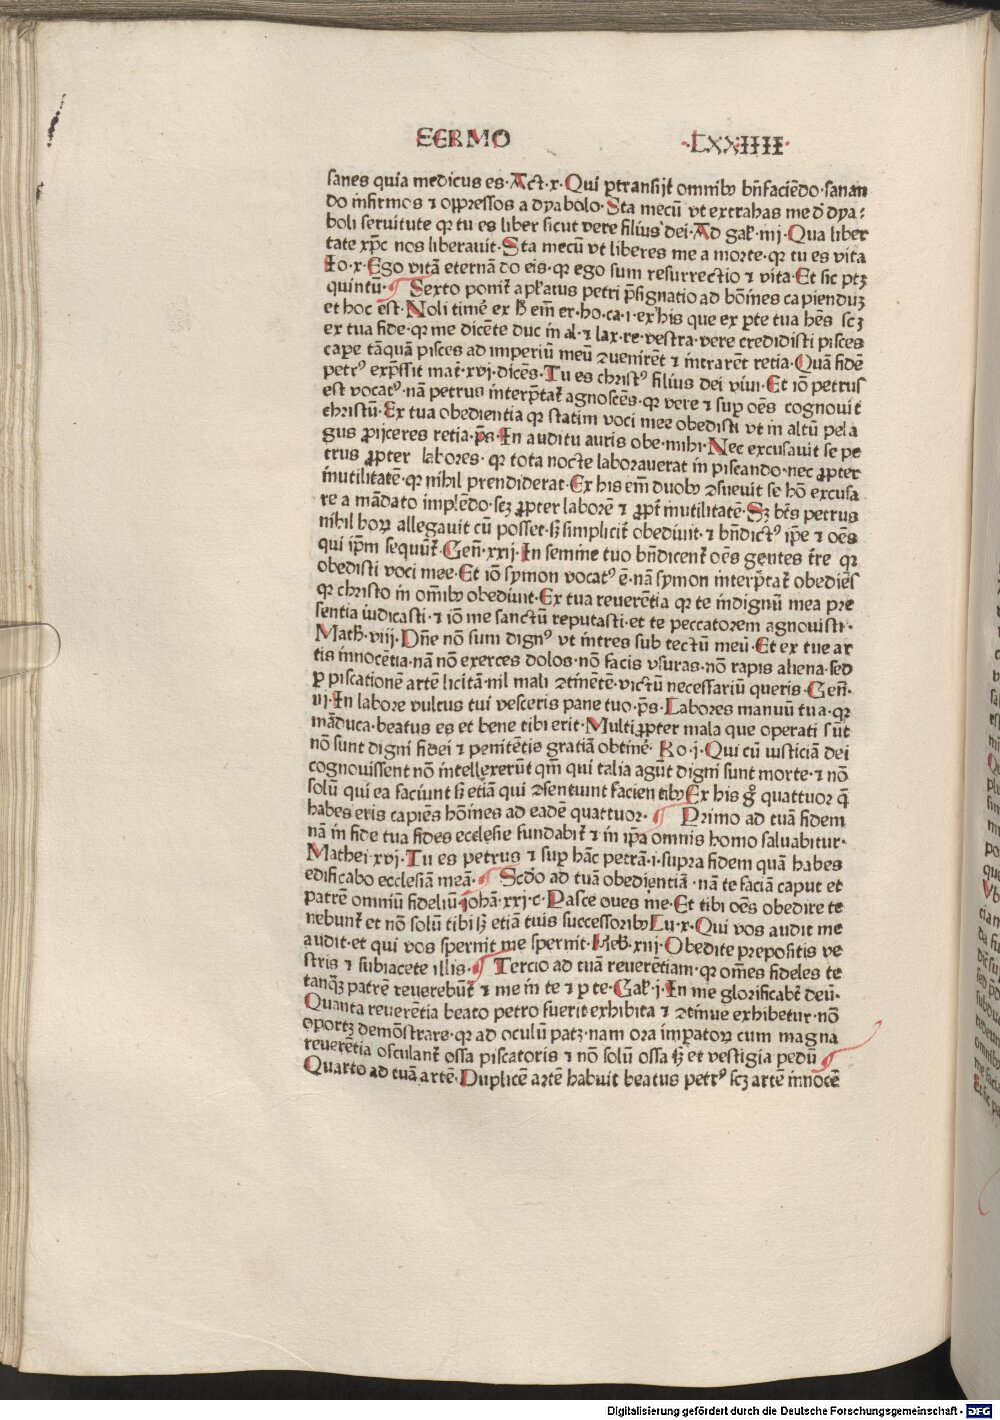 EERMO ·LXXIIII·
sanes quia medicus es·Act̄·x·Qui ꝑtransijt omnibꝰ bn̄faciēdo·sanan
do infirmos ⁊ oppressos a dyabolo·Sta mecū vt extrahas me d̓ dya⸗
boli seruitute qꝛ tu es liber sicut vere filius dei·Ad gal̓·iiij·Qua liber
tate xp̄c nos liberauit·Sta mecū vt liberes me a morte·qꝛ tu es vita
Io·x·Ego vitā eternā do eis·qꝛ ego sum resurrectio ⁊ vita·Et sic ptꝫ
quintū·¶ Sexto ponit̄ apl̓atus petri p̄signatio ad hōines capienduꝫ
et hoc est·Noli timē ex ꝉ em̄ er·ho·ca·i·ex his que ex ꝑte tua hēs scꝫ
ex tua fide·qꝛ me dicēte duc in al·⁊ lax·re·vestra·vere credidisti pisces
caꝑe tāquā pisces ad imperiū meū ꝯuenirēt ⁊ intrarēt retia·Quā fidē
petrꝰ exp̄ssit mat̄·xvj·dicēs·Tu es christꝰ filius dei viui·Et iō petrus
est vocatꝰ·nā petrus interp̄tat̄ agnoscēs·qꝛ vere ⁊ suꝑ oēs cognouit
christū·Ex tua obedientia qꝛ statim voci mee obedisti vt in altū pela
gus ꝓijceres retia·p̄s·In auditu auris obe·mihi·Nec excusauit se pe
trus ꝓpter labores·qꝛ tota nocte laborauerat in piscando·nec ꝓpter
inutilitatē·qꝛ nihil prendiderat·Ex his em̄ duobꝰ ꝯsueuit se hō excusa
re a mādato implēdo·scꝫ ꝓpter laborē ⁊ ꝓpt̄ inutilitatē·Sꝫ bt̄s petrus
nihil hoꝝ allegauit cū posset·sꝫ simplicit̄ obediuit·⁊ bn̄dictꝰ ip̄e ⁊ oēs
qui ip̄m sequūt̄·Gen̄·xxij·In semine tuo bn̄dicent̄ oēs gentes t̄re qꝛ
obedisti voci mee·Et iō symon vocatꝰ ē·nā symon interp̄tat̄ obediēs
qꝛ christo in om̄ibꝰ obediuit·Ex tua reuerētia qꝛ te indignū mea pre
sentia iudicasti·⁊ iō me sanctū reputasti·et te peccatorem agnouisti·
Math̄·viij·Dn̄e nō sum dignꝰ vt intres sub tectū meū·Et ex tue ar
tis innocētia·nā nō exerces dolos·nō facis vsuras·nō rapis aliena·sed
ꝑ piscationē artē licitā·nil mali ꝯtinētē·victū necessariū queris·Gen̄·
iij·In labore vultus tui vesceris pane tuo·p̄s·Labores manuū tua·qꝛ
māduca·beatus es et bene tibi erit·Multi ꝓpter mala que operati sūt
nō sunt digni fidei ⁊ penitētis gratiā obtinē·Ro·j·Qui cū iusticiā dei
cognouissent nō intellexerūt qm̄ qui talia agūt digni sunt morte·⁊ nō
solū qui ea faciunt sꝫ etiā qui ꝯsentiunt facientibꝰ Ex his gͦ quattuor q̄
habes eris capiēs hōines ad eadē quattuor·¶ Primo ad tuā fidem
nā in fide tua fides ecclesie fundabit̄ ⁊ in ip̄a omnis homo saluabitur·
Mathei xvj·Tu es petrus ⁊ suꝑ hāc petrā·i·supra fidem quā habes
edificabo ecclesiā meā·¶ Scd̄o ad tuā obedientiā·nā te faciā caput et
patrē omniū fideliū johā·xxj·c·Pasce oues me·Et tibi oēs obedire te
nebunt̄ et nō solū tibi sꝫ etiā tuis successoribꝰ Lu·x·Qui vos audit me
audit·et qui vos spernit me spernit·Heb̄·xiij·Obedite prepositis ve
stris ⁊ subiacete illis·¶ Tercio ad tuā reuerētiam·qꝛ om̄es fideles te
tanqꝫ patrē reuerebūt̄ ⁊ me in te ⁊ ꝑ te·Gal̓·j·In me glorificabt̄ deū·
Quanta reuerētia beato petro fuerit exhibita ⁊ ꝯtinue exhibetur·nō
oportꝫ demōstrare·qꝛ ad oculū patꝫ·nam ora imꝑatoꝝ cum magna
reuerētia osculant̄ ossa piscatoris ⁊ nō solū ossa sꝫ et vestigia pedū ¶
Quarto ad tuā artē·Duplicē artē habuit beatus petrꝰ scꝫ artē innocē
Digitalisierung gefördert durch die Deutsche Forschungsgemeinschaft - DFG